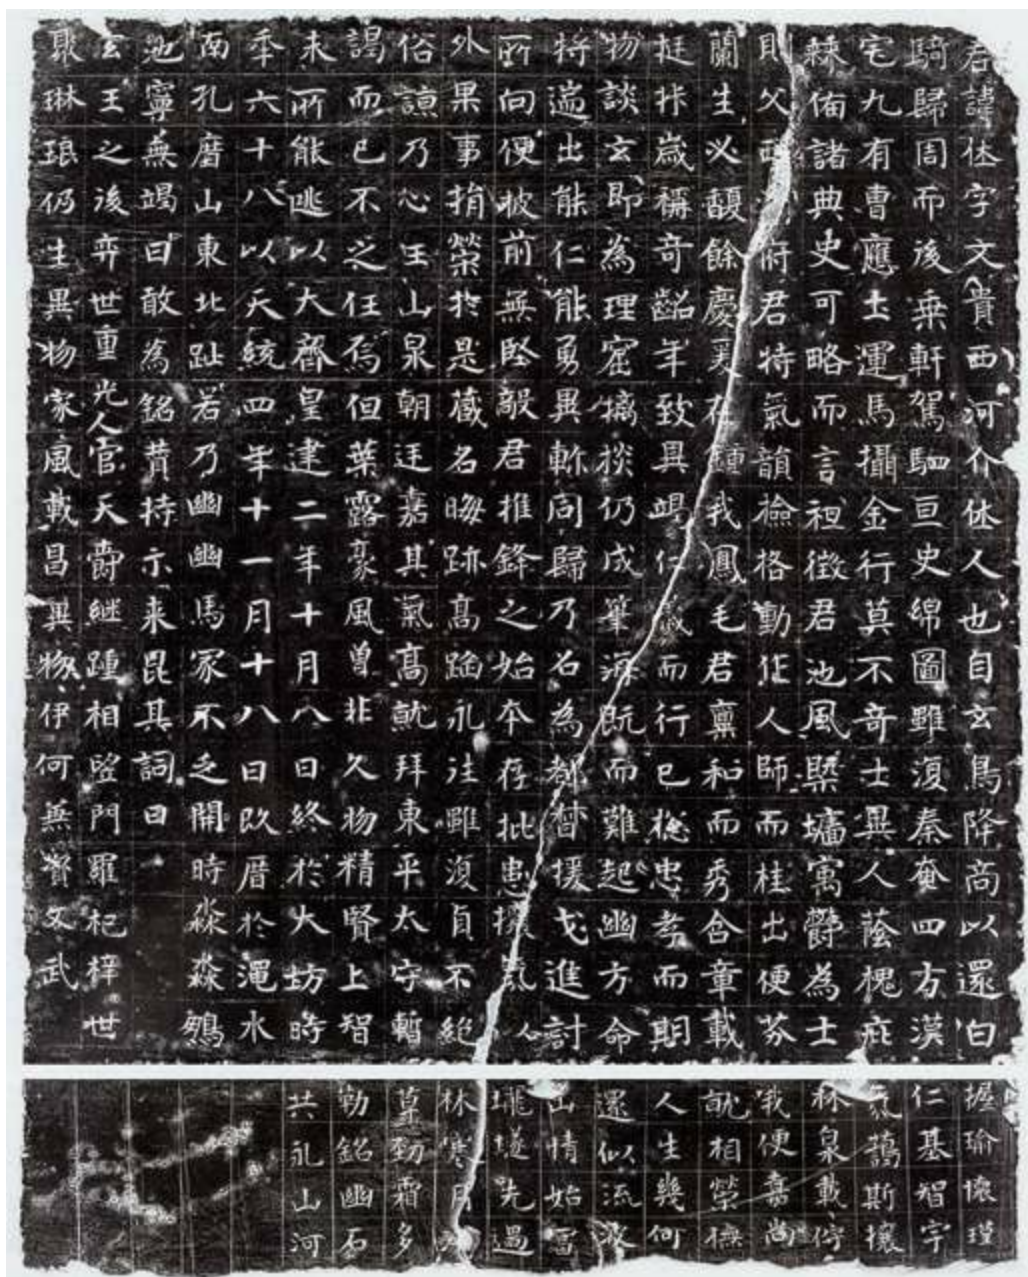 君諱休字文貴西河介休人也自玄鳥降商以還白
騎歸周而後乘軒駕駟亘史綿圖雖復秦奄四方漢
宅九有曹應土運馬攝金行莫不奇士異人蔭槐庇
棘備諸典史可略而言祖徵君池風槩壙寓欝為士
則父西府君特氣韻撿格動止人師而桂出便芬
蘭生必馥餘慶在鍾我鳳毛君稟和而秀含章載
挺卝歲稱奇齠年致異竭仁歲而行已忠孝而期
物談玄即為理窟摛掞仍成筆海既而難起幽方命
將遄出能仁能勇異軫同歸乃名為都督援戈進討
所向便披前無堅敵君推鋒之始本存拯患人
外果事捐榮於是蔵名晦跡高蹈永往雖復貞不絕
俗諒乃心王山泉朝廷嘉其氣高就拜東平太守暫
謁而已不之任焉但葉露豪風曾非久物精賢上智
未所能逃以大齊皇建二年十月八日終於大坊時
年六十八以天統四年十一月十八日改厝於漳水
南孔磨山東北趾若乃幽幽馬冢不乏開時森森鵄
池寧無竭日敢為銘贊持示来昆其詞曰
玄王之後弈世重光人官天爵継踵相望門羅杞梓世
聚琳琅仍生異物家風載昌異物伊何無賫文武
握瑜懷瑾
仁基智宇
氣鵲斯攘
林泉載佇
我便喬尚
就相榮撫
人生幾何
還似流波
山情始冨
壠燧先過
林寒月
草勁霜多
勒銘幽石
共永山河